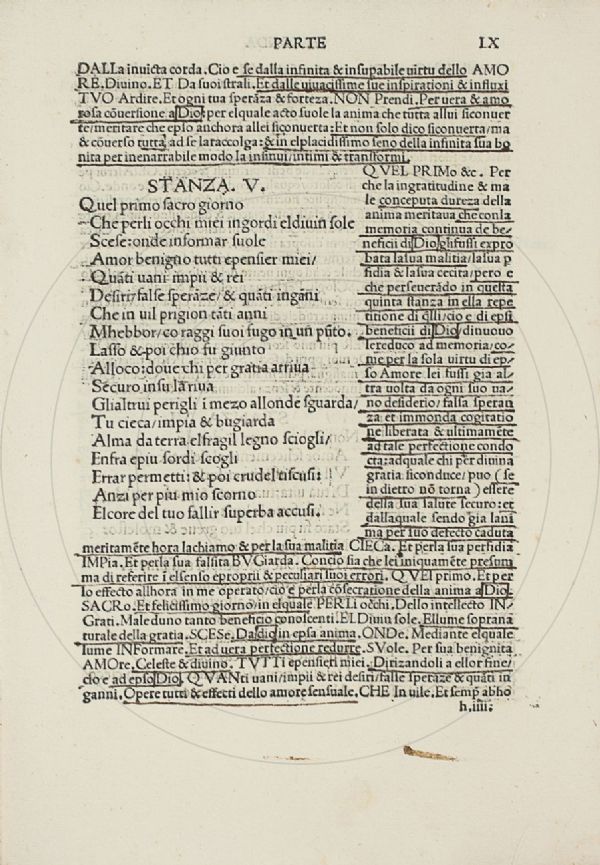 PARTE LX
DALLa inuicta corda. Cio e se dalla infinita & insupabile uirtu dello AMO
RE. Diuino. ET Da suoi strali. Et dalle uiuacissime sue inspirationi & influxi
TVO Ardire. Et ogni tua sperãza & forteza. NON Prendi. Per uera & amo
rosa cõuersione a Dio: per elquale acto suole la anima che tutta allui sicõuer
te/meritare che epso anchora allei sicõuerta: Et non solo dico sicõuerta/ma
& cõuerso tutta ad se laraccolga: & in elplacidissimo seno della infinita sua bo
nita per inenarrabile modo la insinui/intimi & transformi.
STANZA. V.
Quel primo sacro giorno
Che perli occhi miei ingordi eldiuin sole
Scese: onde informar suole
Amor benigno tutti epensier miei/
Quãti uani impii & rei
Desiri/false sperãze/& quãti ingãni
Che in uil prigion tãti anni
Mhebbor/co raggi suoi fugo in un pũto.
Lasso & poi chio fu giunto
Alloco: doue chi per gratia arriua
Securo insu la riua
Glialtrui perigli ĩ mezo allonde sguarda/
Tu cieca/impia & bugiarda
Alma da terra elfragil legno sciogli/
Enfra epiu sordi scogli
Errar permetti: & poi crudel ti scusi:
Anzi per piu mio scorno
El core del tuo fallir superba accusi.
QVEL PRIMo &c. Per
che la ingratitudine & ma
le conceputa dureza della
anima meritaua che conla
memoria continua de be/
neficii di Dio glifussi expro
bata lasua malitia/lasua p
fidia & lasua cecita/pero e
che perseuerãdo in questa
quinta stanza in ella repe
titione di q̃lli/cio e di epsi
beneficii di Dio/dinuouo
lereduco ad memoria/co/
me per la sola uirtu di ep/
so Amore lei fussi gia al
tra uolta da ogni suo ua/
no desiderio/falsa speran
za et immonda cogitatio
ne liberata & ultimamẽte
ad tale perfectione condo
cta: adquale chi per diuina
gratia siconduce/puo (se
in dietro nõ torna) essere
della sua salute securo: et
dallaquale sendo gia lani
ma per suo defecto caduta
meritamẽte hora lachiamo & per la sua malitia CIECa. Et perla sua perfidia
IMPia. Et perla sua falsita BVGiarda. Concio sia che lei iniquamẽte presum
ma di referire ĩ elsenso eproprii & peculiari suoi errori. QVEl primo. Et per
lo effecto allhora in me operato/cio e perla cõsecratione della anima a Dio.
SACRo. Et felicissimo giorno/in elquale PERLi occhi. Dello intellecto IN
Grati. Male duno tanto beneficio conoscenti. El Diuin sole. Ellume sopranа
turale della gratia. SCESe. Da dio in epsa anima. ONDe. Mediante elquale
lume INFormare. Et ad uera perfectione redurre. SVole. Per sua benignita
AMOre. Celeste & diuino. TVTTi epensieri miei. Dirizandoli a ellor fine/
cio e ad epso Dio. QVANti uani/impii & rei desiri/false sperãze & quãti in
ganni. Opere tutti & effecti dello amore sensuale. CHE In uile. Et semp̃ abho
h.iiii.